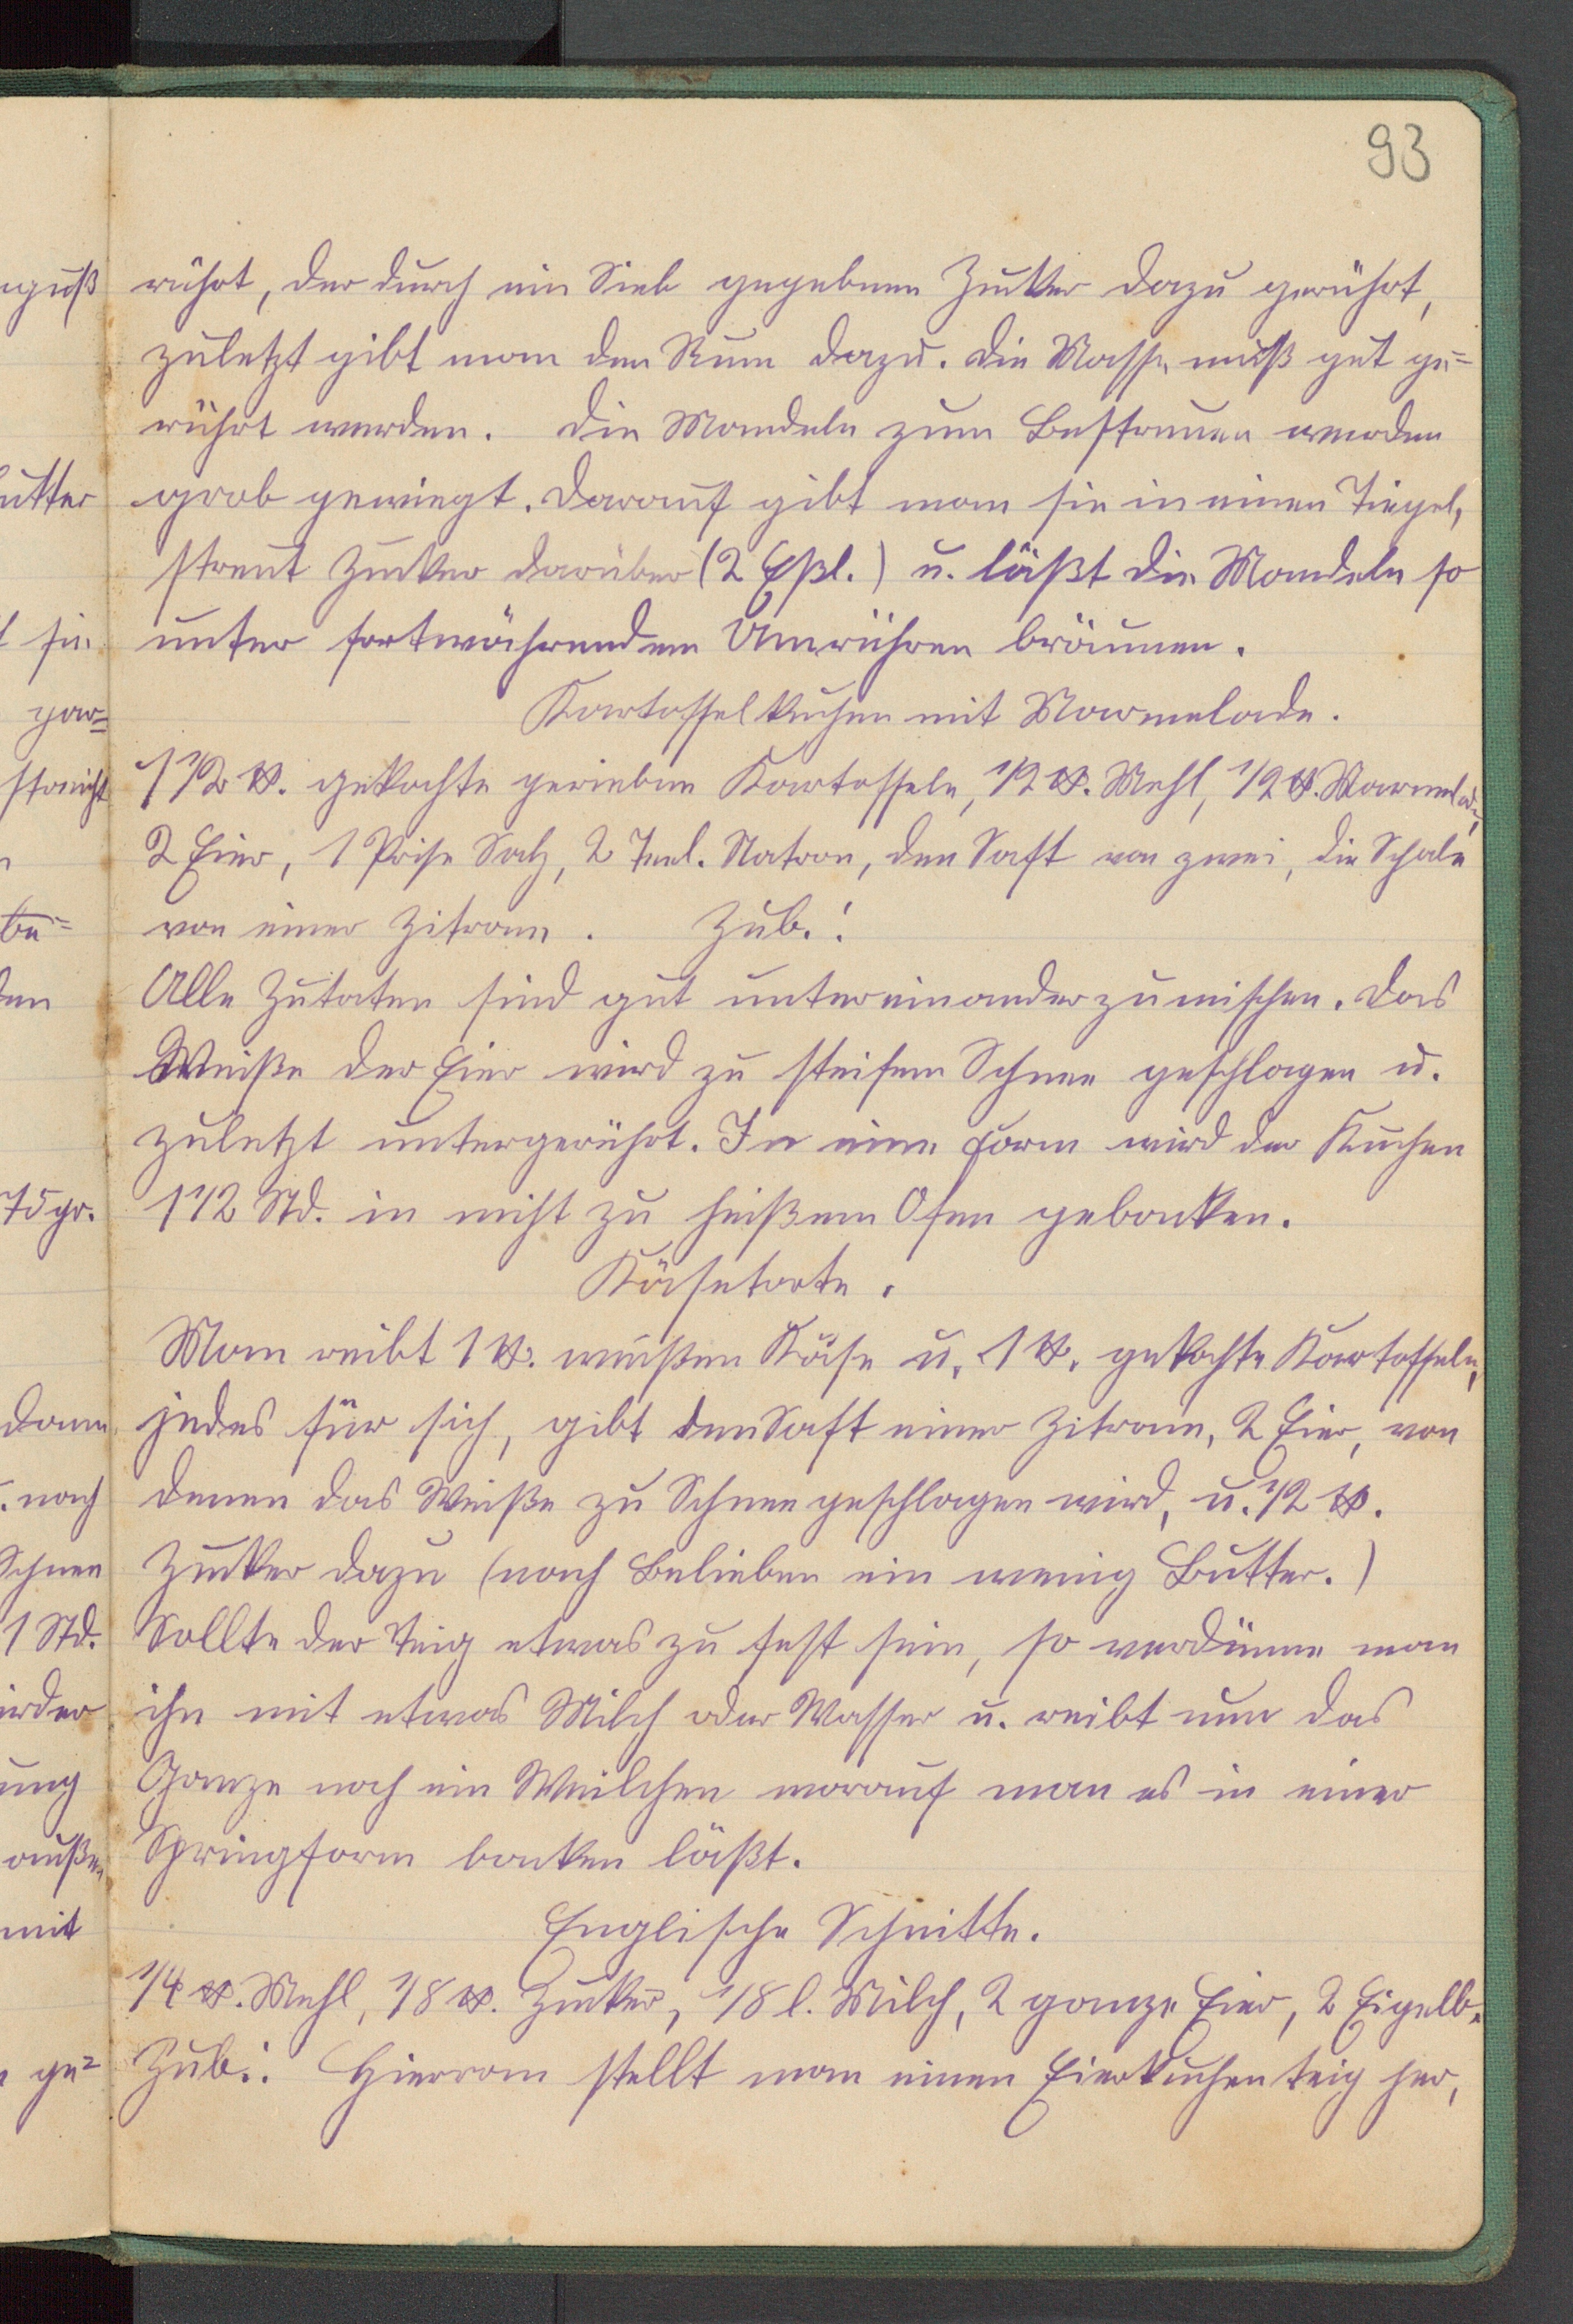 93
rührt, der durch ein Sieb gegebene Zucker dazu gerührt,
zuletzt gibt man den Rum dazu. Die Masse muß gut ge=
rührt werden. Die Mandeln zum Bestreuen werden
grob gewiegt. Darauf gibt man sie in einen Tiegel,
streut Zucker darüber (2 Eßl.) u. läßt die Mandeln so
unter fortwährendem Umrühren bräunen.
Kartoffelkuchen mit Marmelade.
1 1/2 ℔. gekochte geriebene Kartoffeln, 1/2 ℔. Mehl, 1/2 ℔. Marmelade,
2 Eier, 1 Prise Salz, 2 Teel. Natron, den Saft von zwei, die Schale
von einer Zitrone. Zub.:
Alle Zutaten sind gut untereinander zu mischen. Das
Weiße der Eier wird zu steifem Schnee geschlagen u.
zuletzt untergerührt. In eine Form wird der Kuchen
1 1/2 Std. in nicht zu heißem Ofen gebacken.
Käsetorte.
Man reibt 1 ℔. weißen Käse u. 1 ℔. gekochte Kartoffeln,
jedes für sich, gibt den Saft einer Zitrone, 2 Eier, von
denen das Weiße zu Schnee geschlagen wird, u. 1/2 ℔.
Zucker dazu (nach Belieben ein wenig Butter.)
Sollte der Teig etwas zu fest sein, so verdünne man
ihn mit etwas Milch oder Wasser u. reibt nun das
Ganze noch ein Weilchen worauf man es in einer
Springform backen läßt.
Englische Schnitte.
1/4 ℔. Mehl, 1/8 ℔. Zucker, 1/8 l. Milch, 2 ganze Eier, 2 Eigelb.
Zub.: Hiervon stellt man einen Eierkuchenteig her,